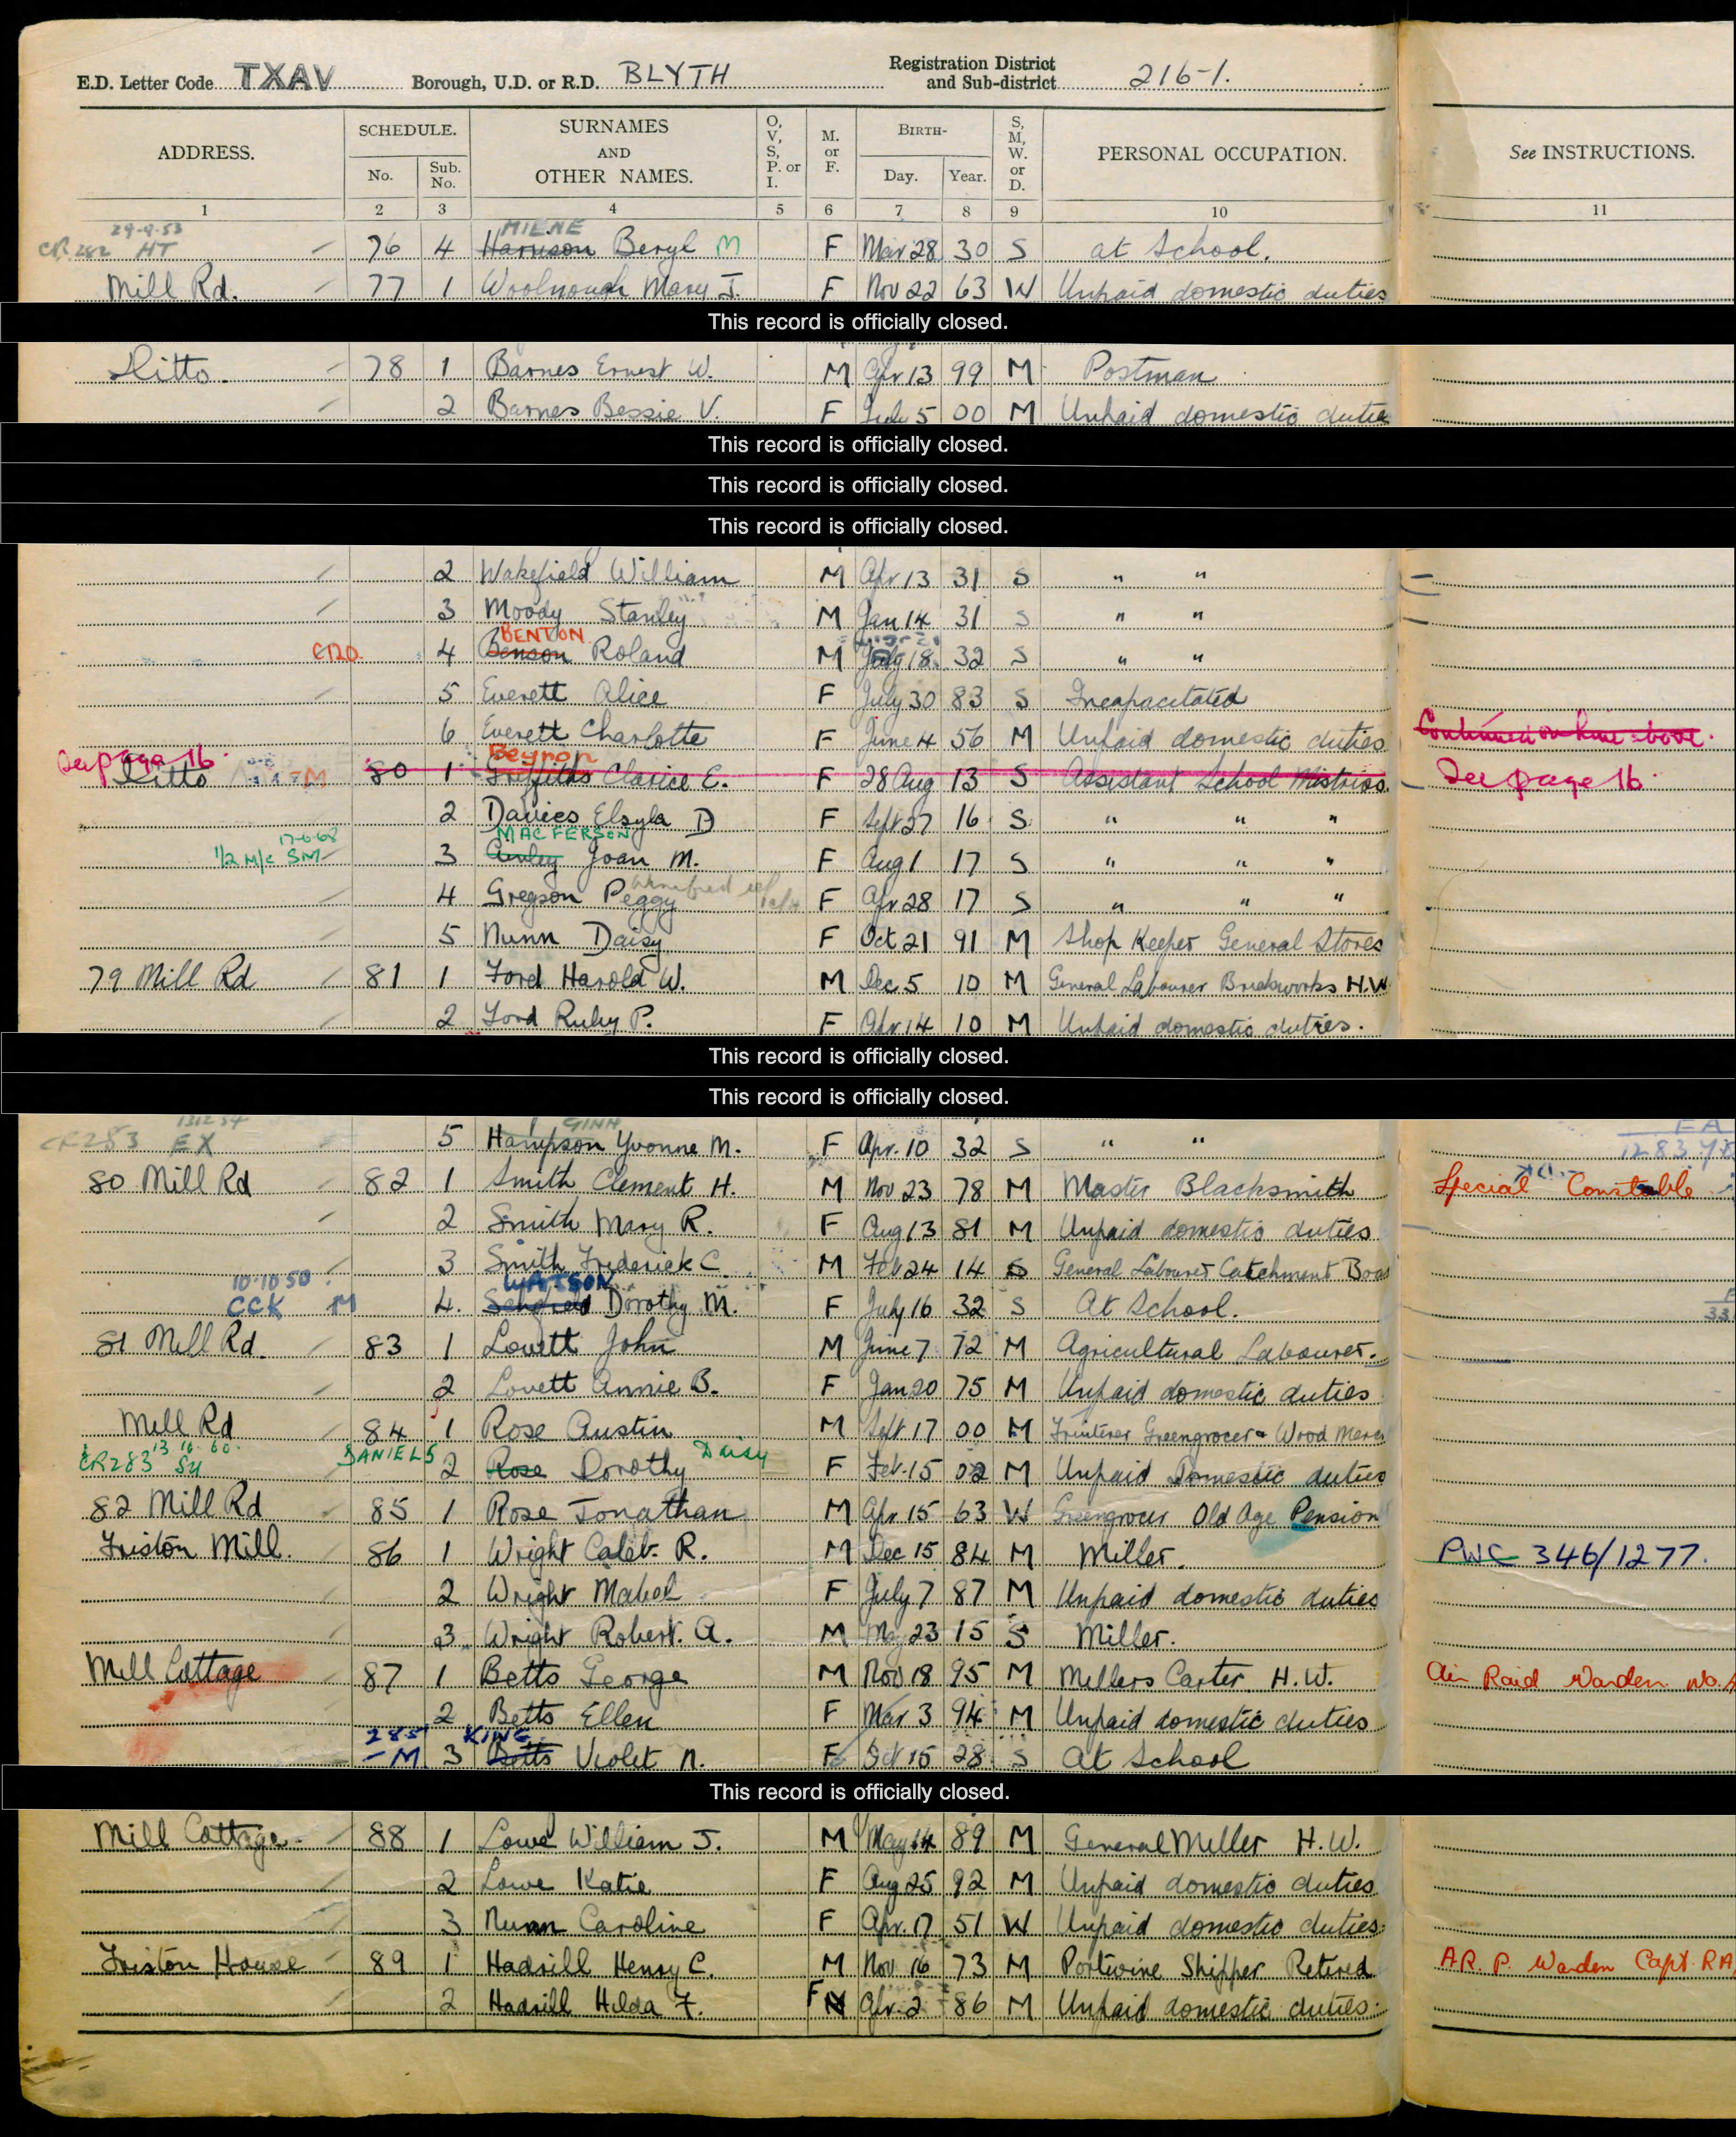 E.D. Letter Code TXAV Borough, U.D. or R.D. BLYTH Registration District and Sub-district 216-1.
ADDRESS. SCHEDULE. No. Sub. No. SURNAMES AND OTHER NAMES. O, V, S, P. or I. M. or F. BIRTH- Day. Year. S, M, W. or D. PERSONAL OCCUPATION. See INSTRUCTIONS.
1 2 3 4 5 6 7 8 9 10 11
29-9-53 MILNE
CR 282 HT 76 4 Harrison Beryl M F Mar 28 30 S at School.
Mill Rd. 77 1 Woolnough Mary J. F Nov 22 63 W Unpaid domestic duties
This record is officially closed.
Ditto. 78 1 Barnes Ernest W. M Apr 13 99 M Postman
2 Barnes Bessie V. F July 5 00 M Unpaid domestic duties
This record is officially closed.
This record is officially closed.
This record is officially closed.
2 Wakefield William M Apr 13 31 S " "
3 Moody Stanley M Jan 14 31 S " "
BENTON
CR20 4 Benson Roland M July 18 32 S " "
5 Everett Alice F July 30 83 S Incapacitated
6 Everett Charlotte F June 4 56 M Unpaid domestic duties Continued on line above.
See page 16. Beyron
Ditto M 80 1 Clarice E. F 28 Aug 13 S Assistant School Mistress. See page 16.
2 Davies Elsyla D F Sept 27 16 S " " "
17-6-68 MACFERSON
1/2 M/c SM 3 Joan M. F Aug 1 17 S " " "
4 Gregson Peggy Winifred F Apr 28 17 S " " "
5 Nunn Daisy F Oct 21 91 M Shop Keeper General Stores
79 Mill Rd 81 1 Ford Harold W. M Dec 5 10 M General Labourer Brickworks H.W
2 Ford Ruby P. F Apr 14 10 M Unpaid domestic duties.
This record is officially closed.
This record is officially closed.
GINN
CR283 EX 5 Hampson Yvonne M. F Apr. 10 32 S " "
80 Mill Rd 82 1 Smith Clement H. M Nov 23 78 M Master Blacksmith Special Constable
2 Smith Mary R. F Aug 13 81 M Unpaid domestic duties
3 Smith Frederick C. M Feb 24 14 S General Labourer Catchment Boa
10-10 50. WATSON
CCK M 4. Dorothy M. F July 16 32 S At School.
81 Mill Rd. 83 1 Lovett John M June 7 72 M Agricultural Labourer.
2 Lovett Annie B. F Jan 20 75 M Unpaid domestic duties
Mill Rd 84 1 Rose Austin M Sept 17 00 M Fruiterer Greengrocer & Wood Merc
CR283 13 10 60. SY DANIELS 2 Rose Dorothy Daisy F Feb. 15 02 M Unpaid Domestic duties
82 Mill Rd 85 1 Rose Jonathan M Apr. 15 63 W Greengrocer Old Age Pension
Friston Mill. 86 1 Wright Caleb R. M Dec 15 84 M Miller. PWC 346/1277.
2 Wright Mabel F July 7 87 M Unpaid domestic duties
3 Wright Robert. A. M May 23 15 S Miller.
Mill Cottage 87 1 Betts George M Nov 18 95 M Millers Carter. H.W. Air Raid Warden No.
2 Betts Ellen F Mar 3 94 M Unpaid domestic duties
285 KING
- M 3 Betts Violet N. F Oct 15 28 S At School
This record is officially closed.
Mill Cottage. 88 1 Lowe William J. M May 14 89 M General Miller H.W.
2 Lowe Katie F Aug 25 92 M Unpaid domestic duties
3 Nunn Caroline F Apr. 17 51 W Unpaid domestic duties.
Friston House 89 1 Hadrill Henry C. M Nov 16 73 M Portwine Shipper Retired A.R.P. Warden Capt. RA
2 Hadrill Hilda F. F Apr. 2 86 M Unpaid domestic duties.